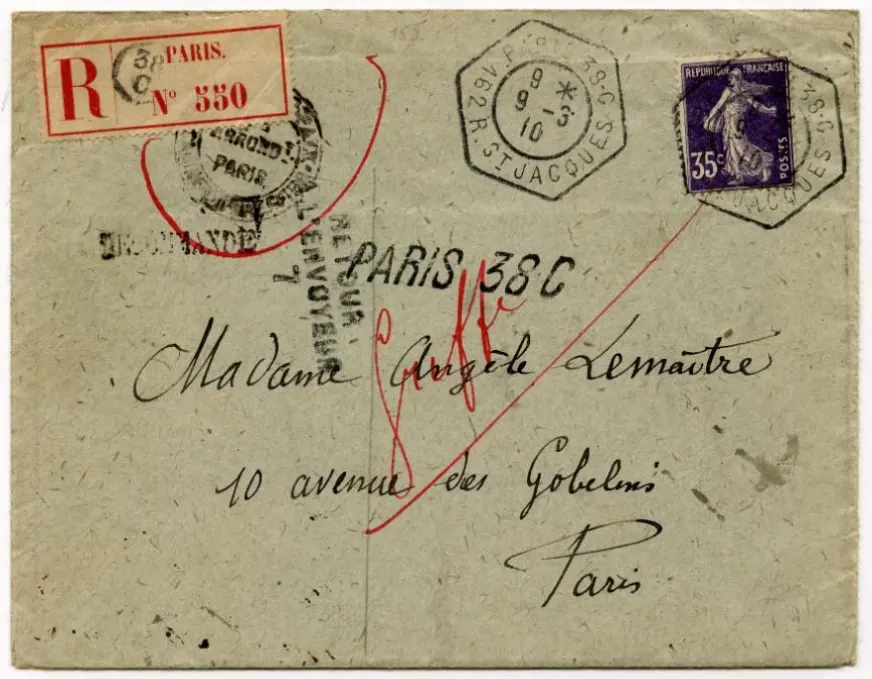 R
38
C
PARIS.
Nº 550
ARRONDT
PARIS
PARIS 38·C
162 R. ST JACQUES
9 *
9 -3
10
REPUBLIQUE FRANÇAISE
35c
POSTES
38·C
JACQUES
RETOUR
A L'ENVOYEUR
7
PARIS 38 C
Greffe
Madame Angèle Lemaître
10 avenue des Gobelins
Paris